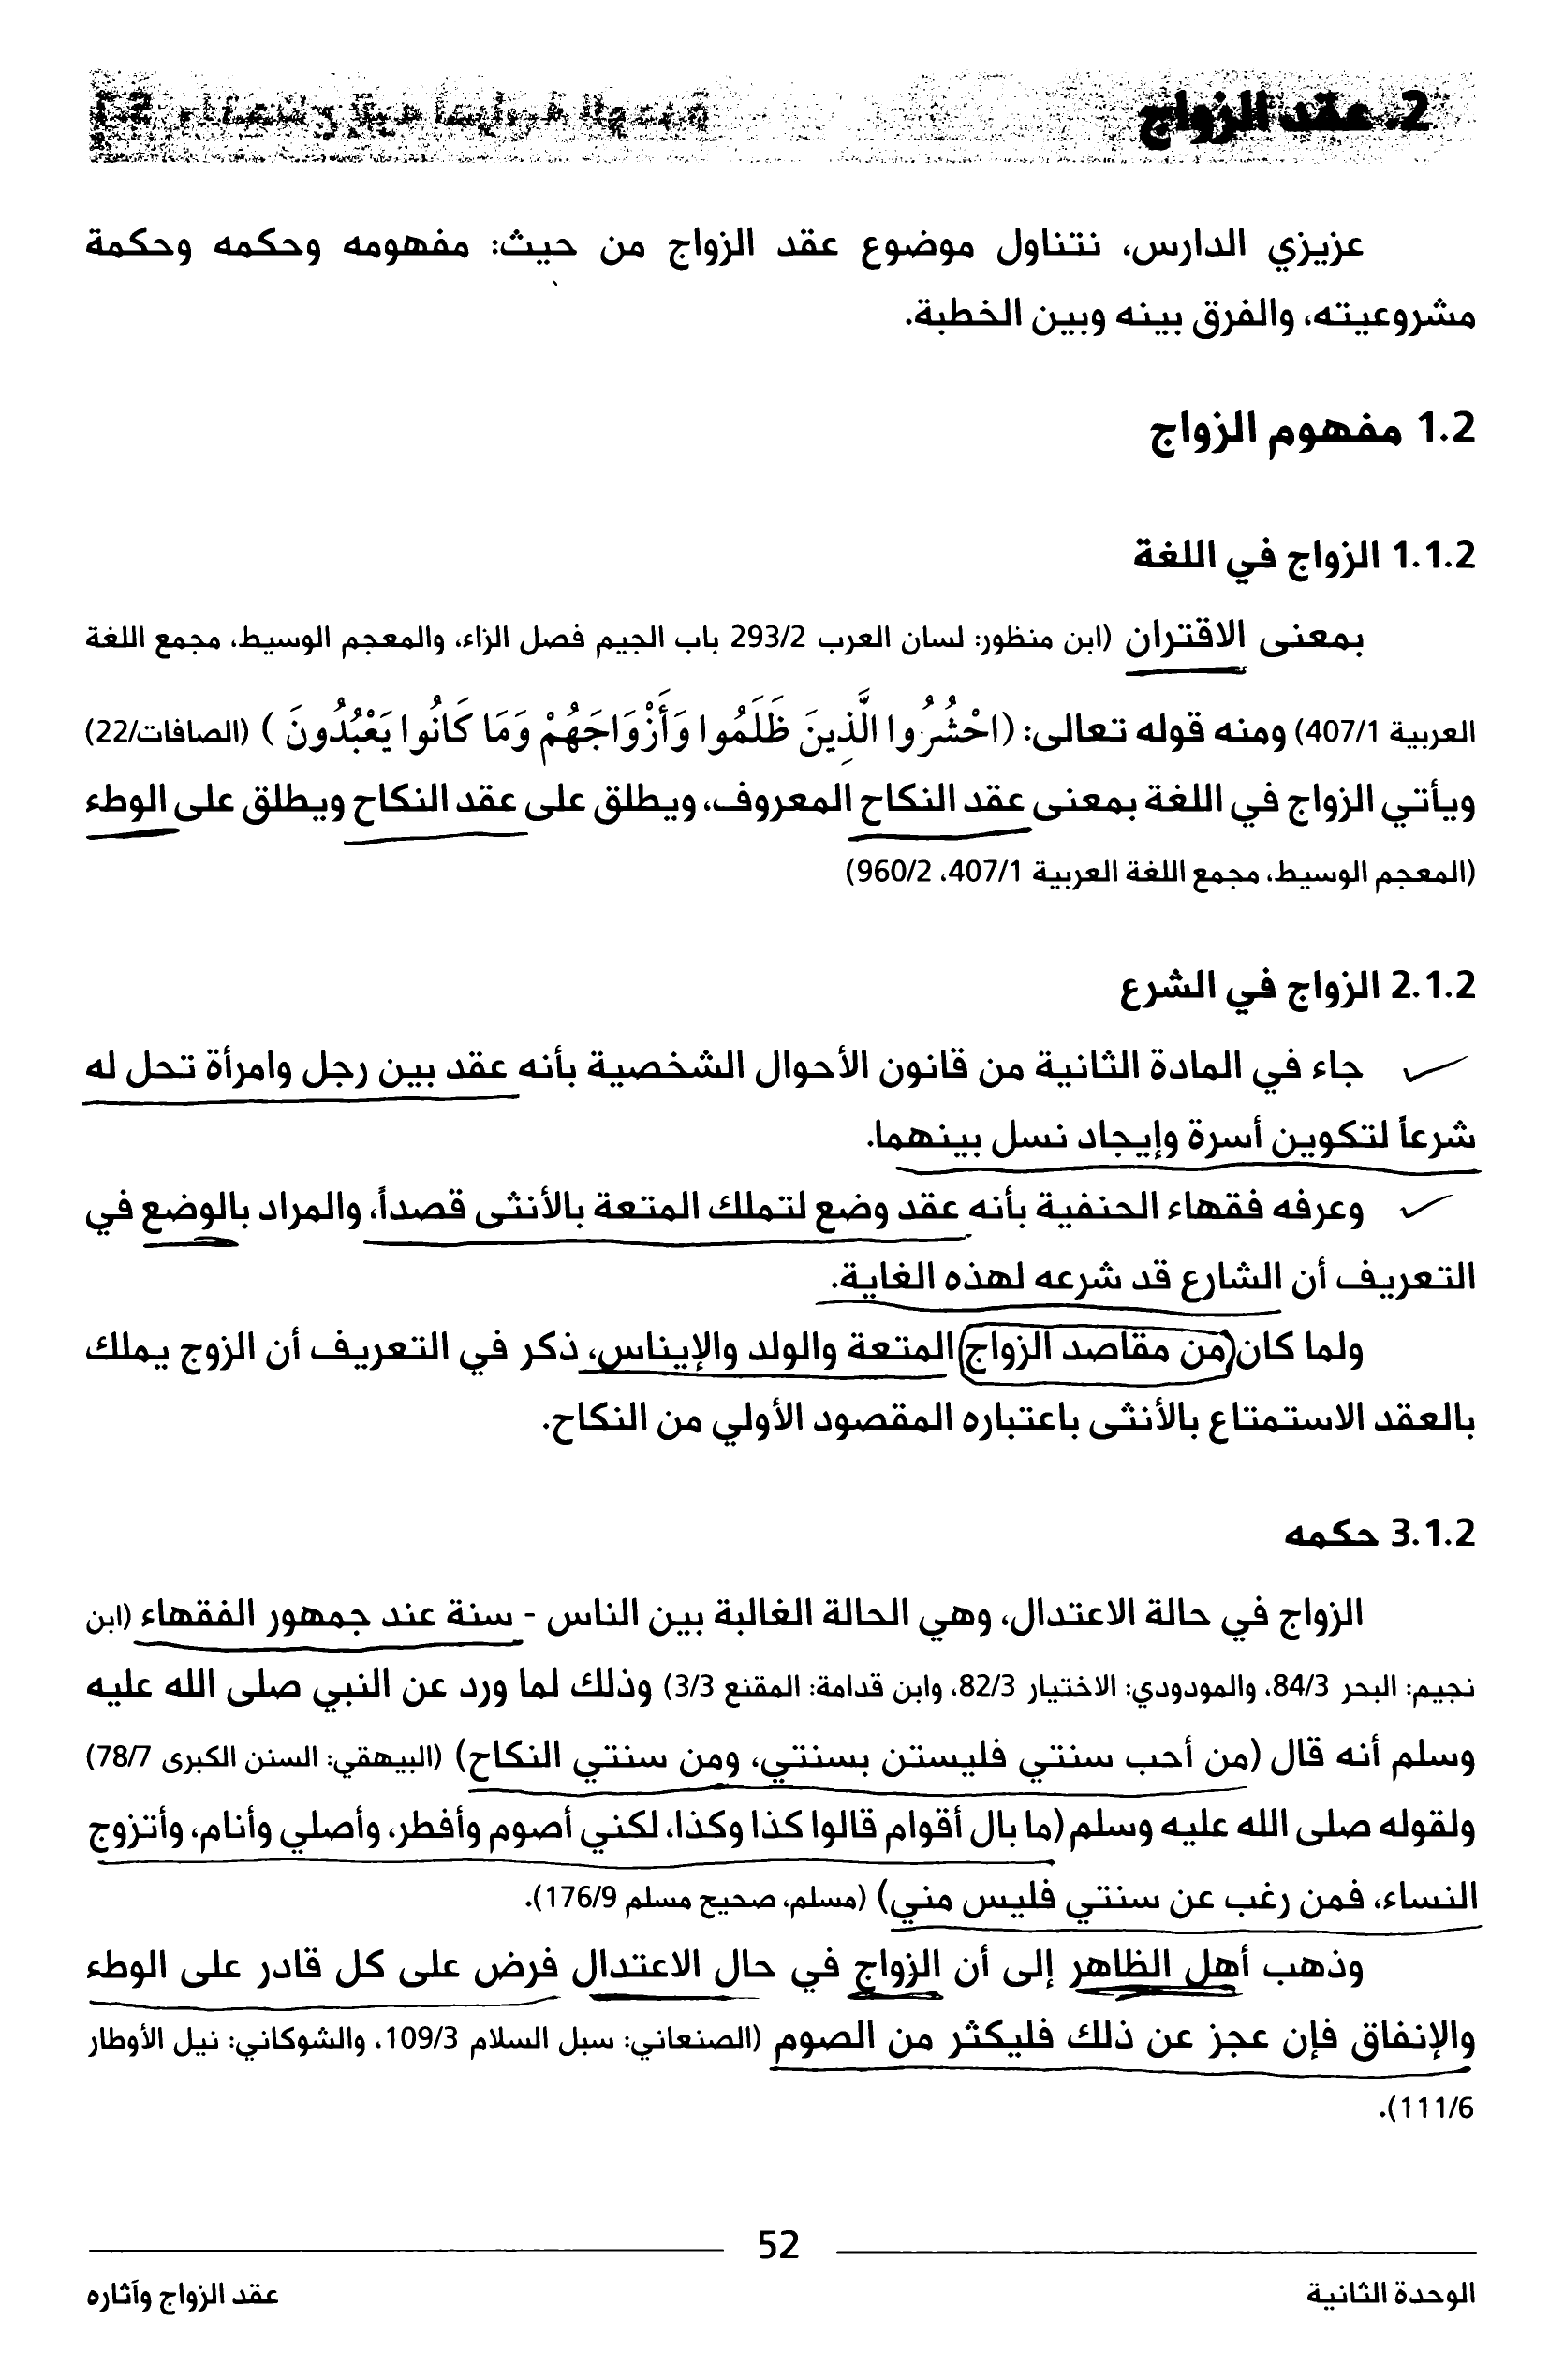 2. عقد الزواج
عزيزي الدارس، نتناول موضوع عقد الزواج من حيث: مفهومه وحكمه وحكمة
مشروعيته، والفرق بينه وبين الخطبة.
1.2 مفهوم الزواج
1.1.2 الزواج في اللغة
بمعنى الاقتران (ابن منظور: لسان العرب 293/2 باب الجيم فصل الزاء، والمعجم الوسيط، مجمع اللغة
العربية 407/1) ومنه قوله تعالى: (احْشُرُوا الَّذِينَ ظَلَمُوا وَأَزْوَاجَهُمْ وَمَا كَانُوا يَعْبُدُونَ ) (الصافات/22)
ويأتي الزواج في اللغة بمعنى عقد النكاح المعروف، ويطلق على عقد النكاح ويطلق على الوطء
(المعجم الوسيط، مجمع اللغة العربية 407/1، 960/2)
2.1.2 الزواج في الشرع
جاء في المادة الثانية من قانون الأحوال الشخصية بأنه عقد بين رجل وامرأة تحل له
شرعاً لتكوين أسرة وإيجاد نسل بينهما.
وعرفه فقهاء الحنفية بأنه عقد وضع لتملك المتعة بالأنثى قصداً، والمراد بالوضع في
التعريف أن الشارع قد شرعه لهذه الغاية.
ولما كان من مقاصد الزواج المتعة والولد والإيناس، ذكر في التعريف أن الزوج يملك
بالعقد الاستمتاع بالأنثى باعتباره المقصود الأولي من النكاح.
3.1.2 حكمه
الزواج في حالة الاعتدال، وهي الحالة الغالبة بين الناس - سنة عند جمهور الفقهاء (ابن
نجيم: البحر 84/3، والمودودي: الاختيار 82/3، وابن قدامة: المقنع 3/3) وذلك لما ورد عن النبي صلى الله عليه
وسلم أنه قال (من أحب سنتي فليستن بسنتي، ومن سنتي النكاح) (البيهقي: السنن الكبرى 78/7)
ولقوله صلى الله عليه وسلم (ما بال أقوام قالوا كذا وكذا، لكني أصوم وأفطر، وأصلي وأنام، وأتزوج
النساء، فمن رغب عن سنتي فليس مني) (مسلم، صحيح مسلم 176/9).
وذهب أهل الظاهر إلى أن الزواج في حال الاعتدال فرض على كل قادر على الوطء
والإنفاق فإن عجز عن ذلك فليكثر من الصوم (الصنعاني: سبل السلام 109/3، والشوكاني: نيل الأوطار
111/6).
52
الوحدة الثانية
عقد الزواج وآثاره